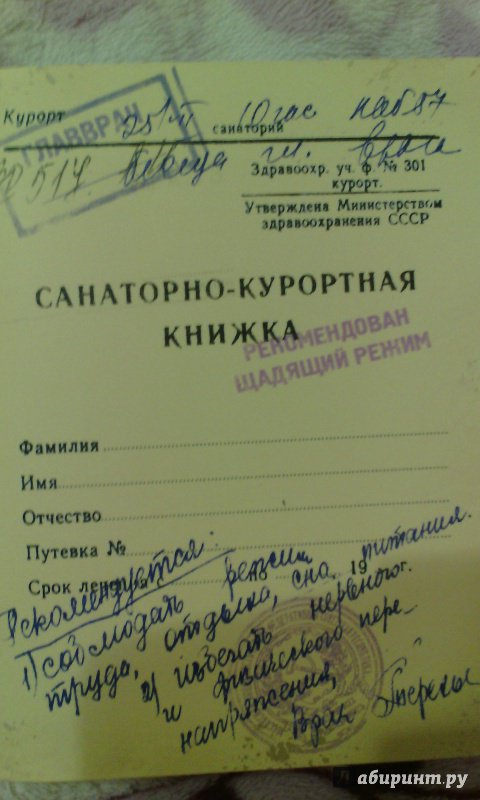 Курорт
25/II 10 час каб 57
санаторий
ГЛАВВРАЧ
517
гл. врач
Здравоохр. уч. ф. № 301
курорт.
Утверждена Министерством
здравоохранения СССР
САНАТОРНО-КУРОРТНАЯ
КНИЖКА
РЕКОМЕНДОВАН
ЩАДЯЩИЙ РЕЖИМ
Фамилия
Имя
Отчество
Путевка №
Срок лечения с
19
г.
Рекомендуется:
1) соблюдать режим
труда, отдыха, сна, питания.
2) избегать нервного
и физического пере-
напряжения,
Врач
абиринт.ру